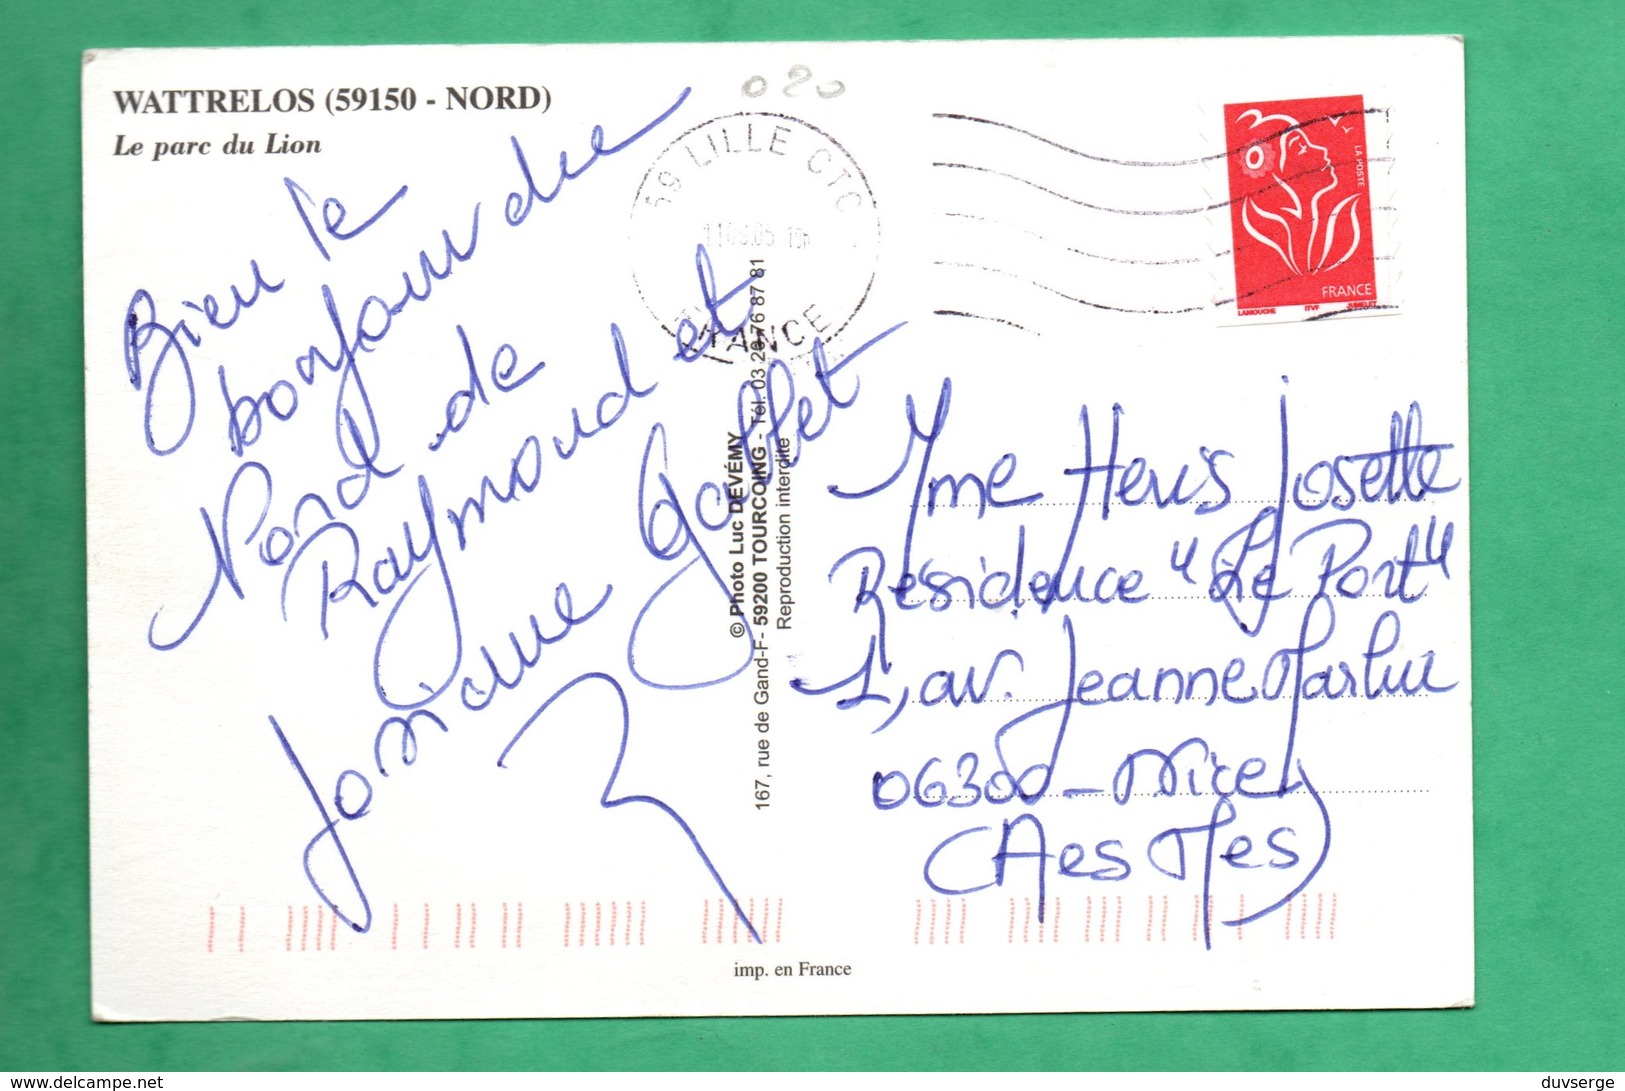 WATTRELOS (59150 - NORD)
Le parc du Lion
020
59 LILLE CTC
FRANCE
LA POSTE
FRANCE
LAMOUCHE ITVF JUMELET
Bien le
bonjour du
Nord de
Raymond et
Josiane Gallet
© Photo Luc DEVÉMY
167, rue de Gand-F- 59200 TOURCOING - Tél. 03 20 76 87 81
Reproduction interdite
Mme Josette
Résidence "Le Port"
1, av. Jeanne
06300 - Nice
(Aes Mes)
imp. en France
duvserge